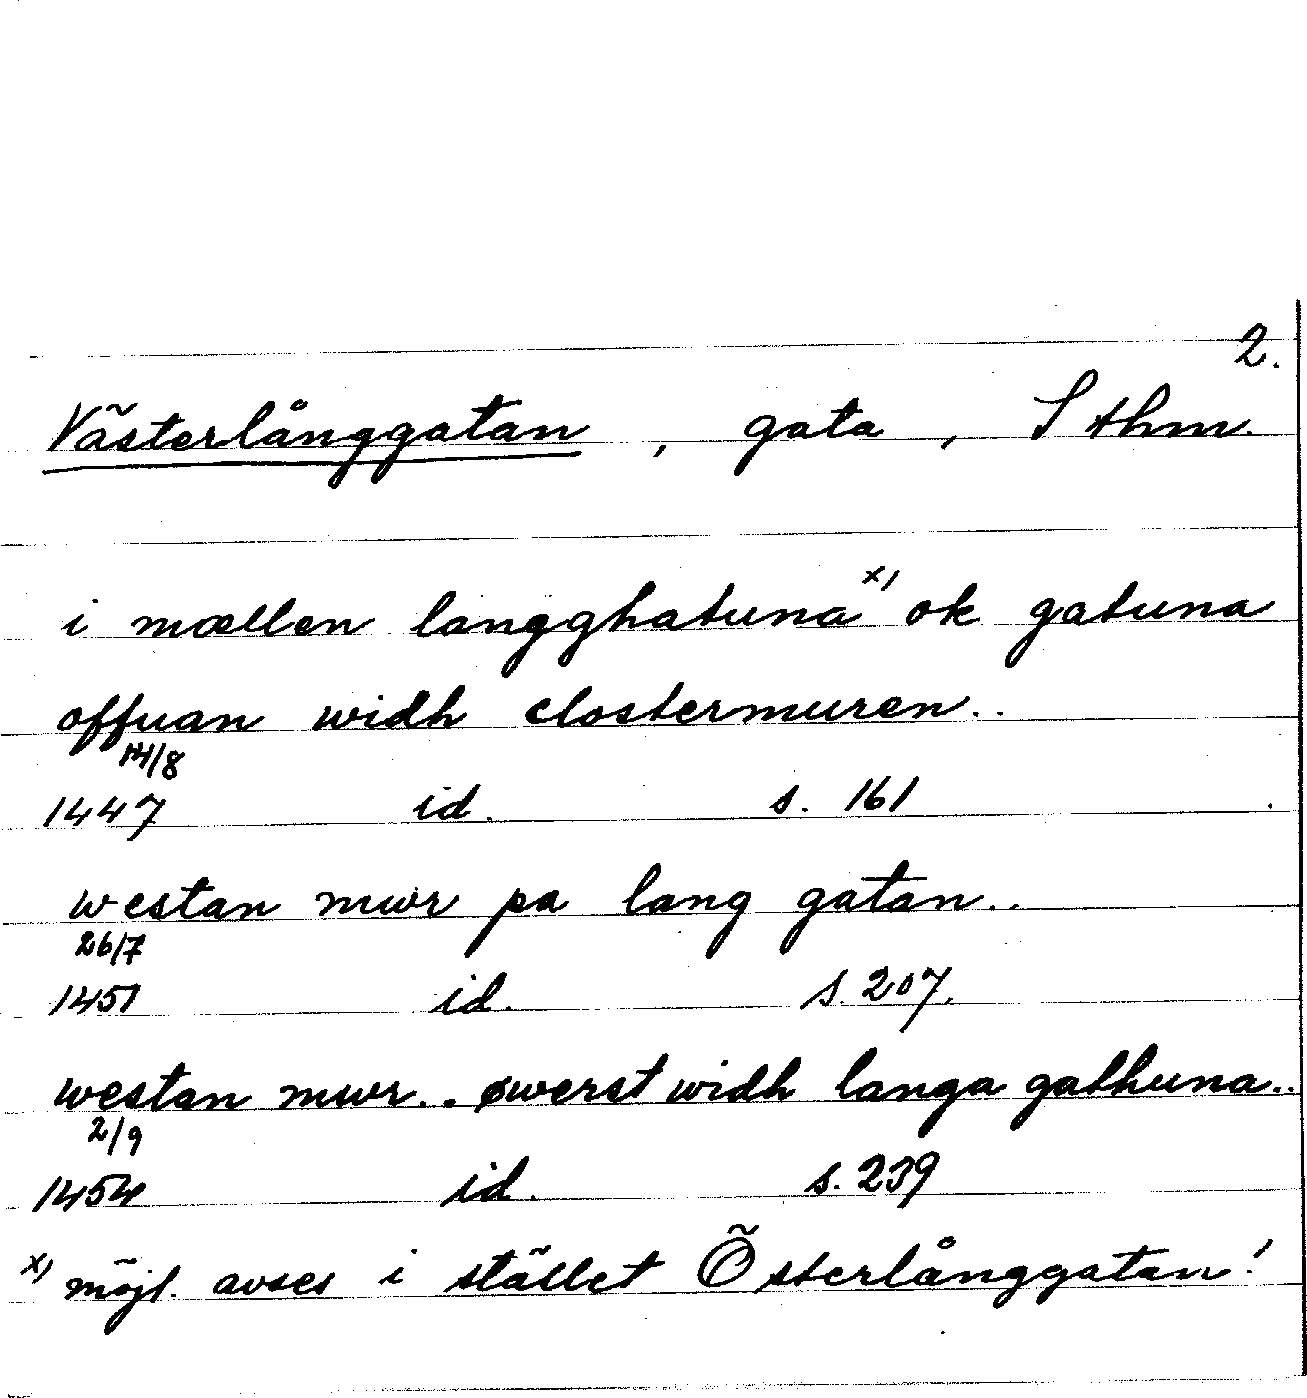 2.
Västerlånggatan, gata, Sthm.
i mællen langghatuna x) ok gatuna
offuan widh clostermuren..
14/8
1447 id. s. 161
westan mwr pa lang gatan..
26/7
1451 id. s. 207.
westan mwr.. øwerst widh langa gathuna..
2/9
1454 id. s. 239
x) möjl. avses i stället Österlånggatan!